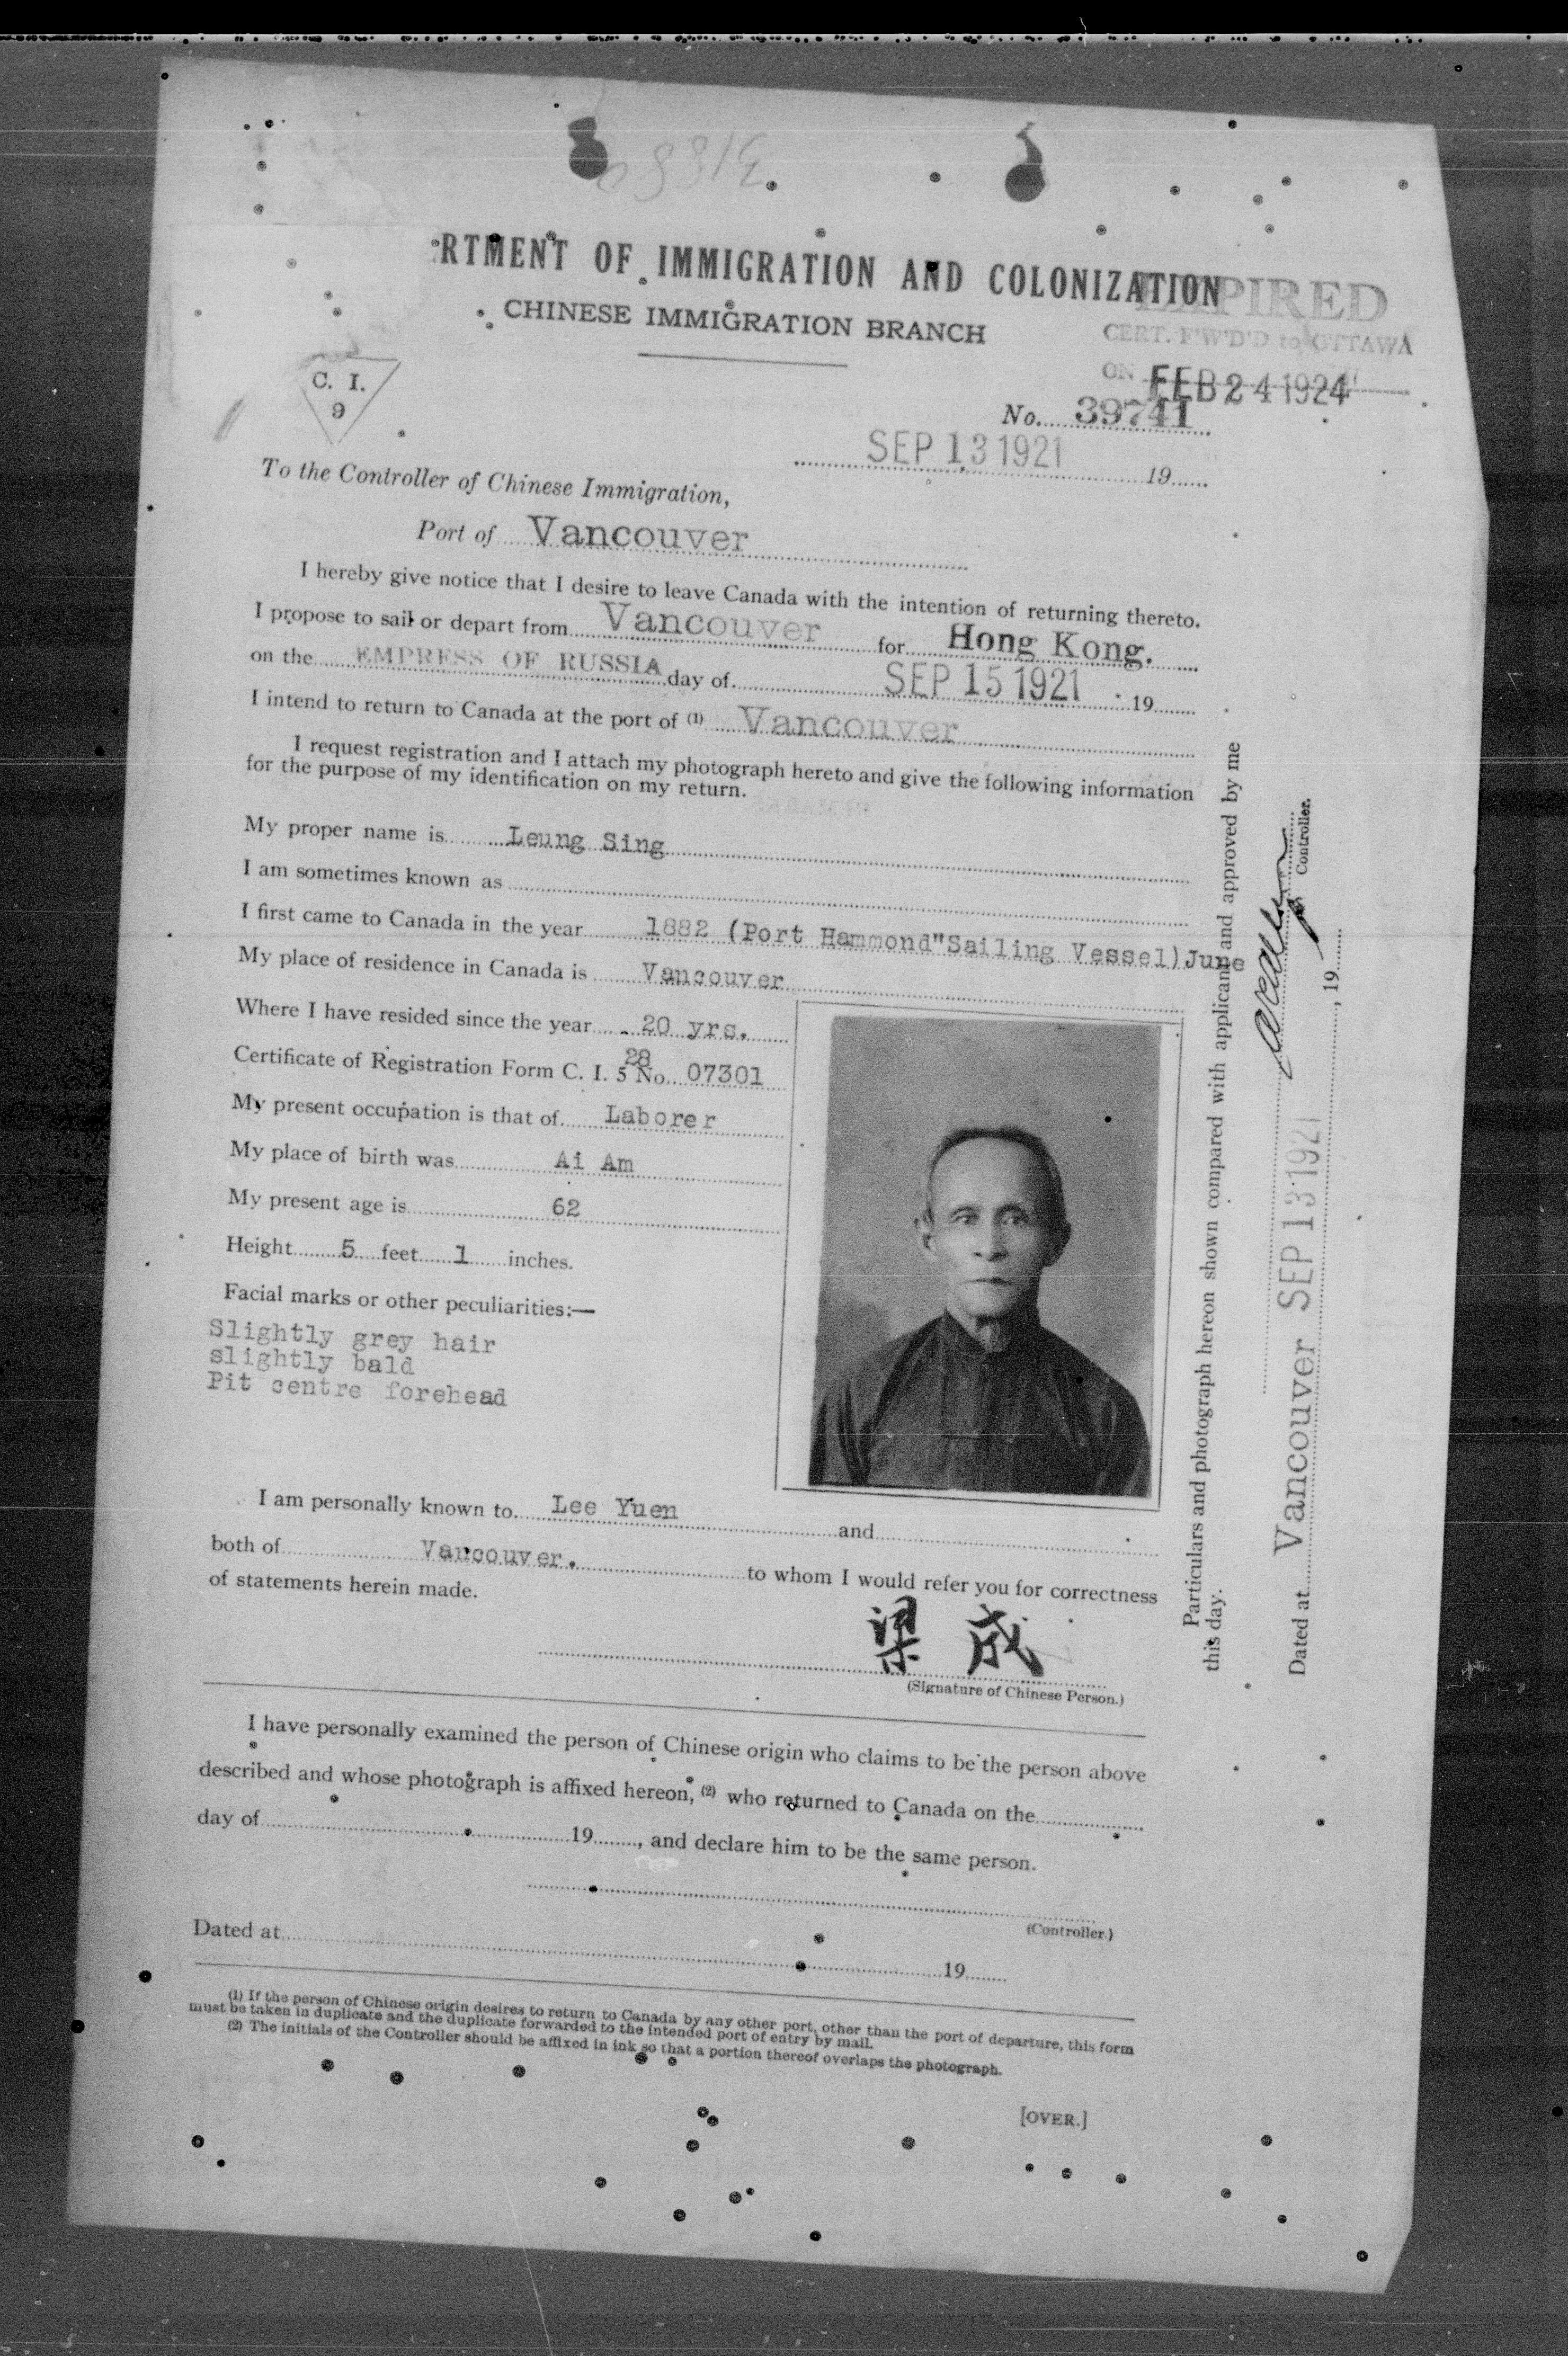 RTMENT OF IMMIGRATION AND COLONIZATION
CHINESE IMMIGRATION BRANCH
EXPIRED
CERT. F'W'D'D to OTTAWA
ON FEB 24 1924
C. I.
9
No. 39741
SEP 13 1921 19
To the Controller of Chinese Immigration,
Port of Vancouver
I hereby give notice that I desire to leave Canada with the intention of returning thereto.
I propose to sail or depart from Vancouver for Hong Kong.
on the EMPRESS OF RUSSIA day of SEP 15 1921 19
I intend to return to Canada at the port of (1) Vancouver
I request registration and I attach my photograph hereto and give the following information
for the purpose of my identification on my return.
My proper name is Leung Sing
I am sometimes known as
I first came to Canada in the year 1882 (Port Hammond"Sailing Vessel)June
My place of residence in Canada is Vancouver
Where I have resided since the year 20 yrs.
Certificate of Registration Form C. I. 5 28 No. 07301
My present occupation is that of Laborer
My place of birth was Ai Am
My present age is 62
Height 5 feet 1 inches.
Facial marks or other peculiarities:—
Slightly grey hair
slightly bald
Pit centre forehead
I am personally known to Lee Yuen and
both of Vancouver. to whom I would refer you for correctness
of statements herein made.
梁成
(Signature of Chinese Person.)
I have personally examined the person of Chinese origin who claims to be the person above
described and whose photograph is affixed hereon, (2) who returned to Canada on the
day of 19 , and declare him to be the same person.
(Controller.)
Dated at 19
(1) If the person of Chinese origin desires to return to Canada by any other port, other than the port of departure, this form
must be taken in duplicate and the duplicate forwarded to the intended port of entry by mail.
(2) The initials of the Controller should be affixed in ink so that a portion thereof overlaps the photograph.
[OVER.]
Particulars and photograph hereon shown compared with applicant and approved by me
this day.
Controller.
Dated at Vancouver SEP 13 1921 , 19